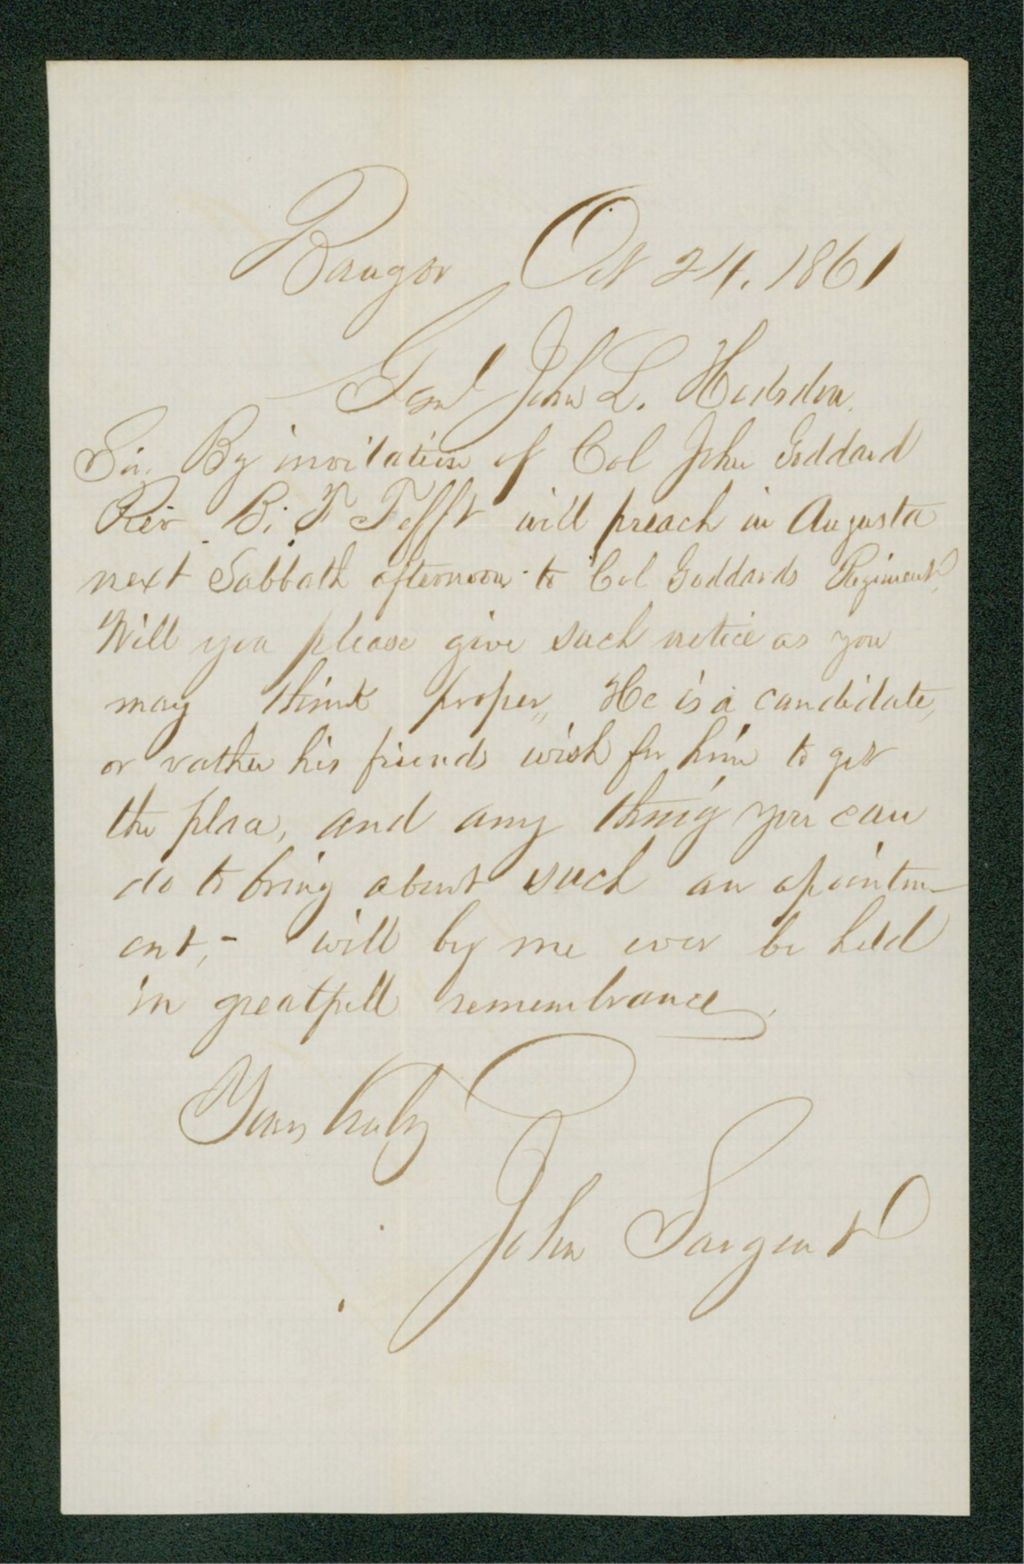 Bangor Oct 24. 1861
Genl John L. Hodsdon.
Sir, By invitation of Col John Goddard
Rev. B. F. Tefft will preach in Augusta
next Sabbath afternoon to Col Goddards Regiment,
Will you please give such notice as you
may think proper, He is a candidate,
or rather his friends wish for him to get
the place, and any thing you can
do to bring about such an apointm-
ent, - will by me ever be held
in greatfull remembrance,
Yours truly
John Sargent